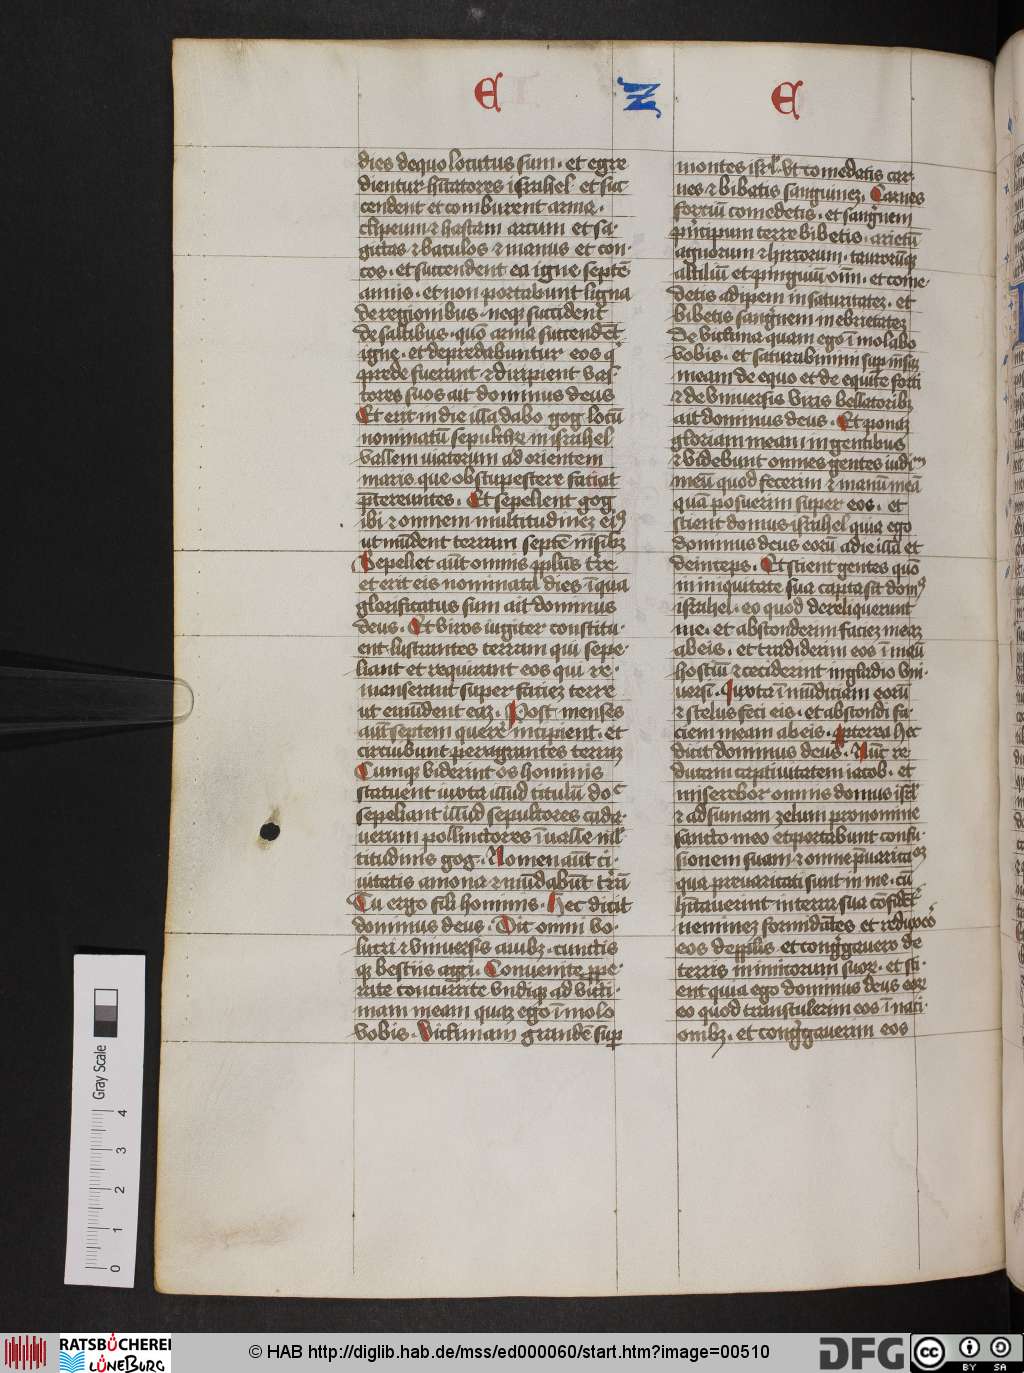 E Z E
dies de quo locutus sum · et egre
dientur hītatores israhel et suc
cendent et comburent arma ·
clipeum ⁊ hastam arcum et sa·
gittas ⁊ baculos ⁊ manus et con·
tos · et succendent ea igne septē
annis · et non portabunt ligna
de regionibus · neqȝ succident
de saltibus · quō arma succendēt
igne · et depredabuntur eos q̇
prede fuerant ⁊ diripient vas·
tores suos ait dominus deus
Et erit in die illa dabo gog locū
nominatū sepulchrȝ in israhel
vallem viatorum ad orientem
maris que obstupescere faciat
p̄tereuntes · Et sepelient gog
ibi ⁊ omnem multitudinez eiꝰ
ut mūdent terram septē mēsibȝ
Sepeliet aūt omnis ppl̄us tre
et erit eis nominata dies ī qua
glorificatus sum ait dominus
deus · Et viros iugiter constitu·
ent lustrantes terram qui sepe·
liant et requirant eos qui re·
manserant super faciez terre
ut emūdent eaz · Post menses
aūt septem querē incipient · et
circuibunt peragrantes terraz
Cumqȝ viderint os hominis
statuent iuxta illud titulū do·
sepeliant illud sepultores cada·
verum pollinctores ī valle ml̄
titudinis gog · Nomen aūt ci·
vitatis amona ⁊ mūdabūt trā
Tu ergo fili hominis · Hec dicit
dominus deus · Dic omni vo·
lucri ⁊ vniversis avibȝ · cunctis
qȝ bestiis agri · Convenite ppe·
rate concurrite vndiqȝ ad victi·
mam meam quaz ego īmolo
vobis · Victimam grandē sup
montes isrl̄ · Vt comedatis car·
nes ⁊ bibatis sanguinez · Carnes
fortiū comedetis · et sangnem
principum terre bibetis · arietū
agnorum ⁊ hircorum · taurorūqȝ
altiliū et pinguiū oīm · et come·
detis adipem in saturitatez · et
bibetis sangnem in ebrietatez
De victima quam ego īmolabo
vobis · et saturabimini sup mēsaȝ
meam de equo et de equite forti
⁊ de vniversis viris bellatoribȝ
ait dominus deus · Et ponaȝ
gloriam meam in gentibus
⁊ videbunt omnes gentes iudim
meū quod fecerim ⁊ manū meā
quā posuerim super eos · et
scient domus israhel quia ego
dominus deus eorū a die illa et
deinceps · Et scient gentes quō
in iniquitate sua capta sit domꝰ
israhel · eo quod dereliquerint
me · et absconderim faciez meaȝ
ab eis · et tradiderim eos ī manū
hostiū ⁊ ceciderint in gladio vni·
versi · Iuxta īmūditiam eorū
⁊ scelus feci eis · et abscondi fa·
ciem meam ab eis · Apterea hec
dicit dominus deus · Nūc re
ducam captivitatem iacob · et
miserebor omnis domus isrl̄
⁊ adsumam zelum pro nomine
sancto meo et portabunt confu·
sionem suam ⁊ omnē p̄varicacōȝ
qua prevaricati sunt in me · cū
hītaverint in terra sua cōfidēt
neminez formidātes et reduxero
eos de pplis · et cong̃gavero de
terris inimicorum suorȝ · et sci·
ent quia ego dominus deus eorȝ
eo quod transtulerim eos ī nati·
onibȝ · et cong̃gaverim eos
Gray Scale
0 1 2 3 4
RATSBÜCHEREI
LÜNEBURG
© HAB http://diglib.hab.de/mss/ed000060/start.htm?image=00510
DFG
cc
BY SA